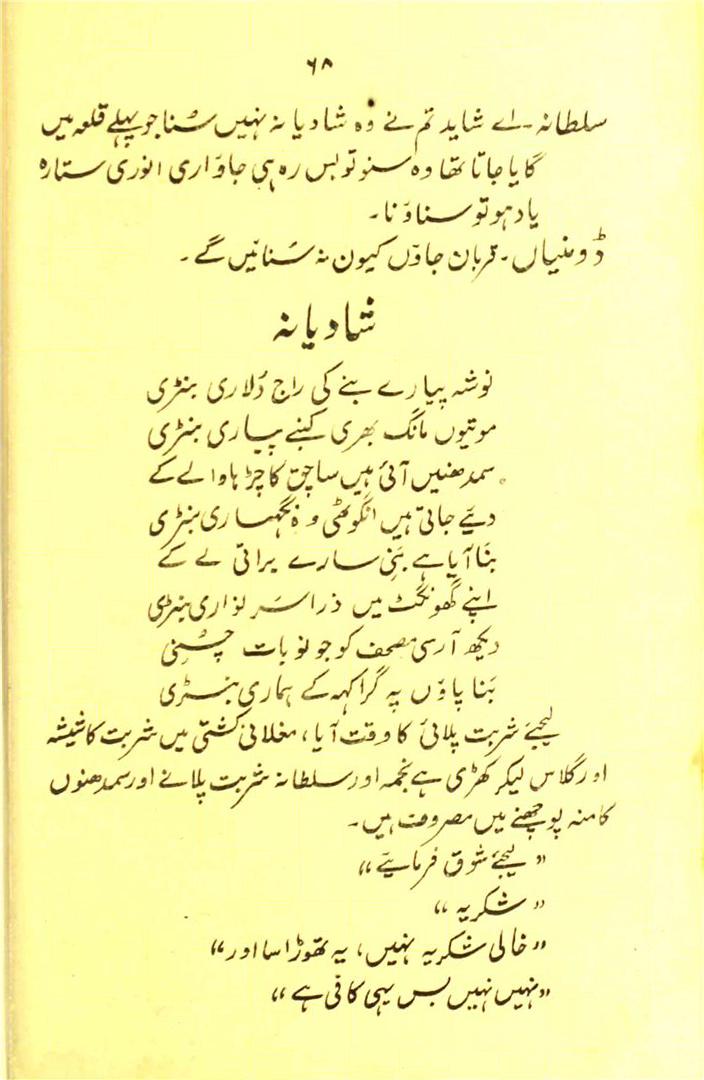 ۶۸
سلطانہ۔ اے شاید تم نے وہ شادیانہ نہیں سُنا جو پہلے قلعہ میں
گایا جاتا تھا وہ سنو تو بس رہ ہی جاؤ اری انوری ستارہ
یاد ہو تو سناؤنا۔
ڈومنیاں۔ قربان جاؤں کیون نہ سُنائیں گے۔
شادیانہ
نوشہ پیارے بنے کی راج دُلاری بنڑی
موتیوں مانگ بھری کہئے پیاری بنڑی
سمدھنیں آئی ہیں ساچق کا چڑہاوا لے کے
دیئے جاتی ہیں انگوٹھی وہ نگہاری بنڑی
بَنا آیا ہے بَنی سارے براتی لے کے
اپنے گھونگٹ میں ذرا سر نواری بنڑی
دیکھ آرسی مصحف کو جو نوبات چُنی
بَنا پاؤں پہ گرا کہہ کے ہماری بنڑی
لیجئے شربت پلائی کا وقت آیا، مغلانی کشتی میں شربت کا شیشہ
اور گلاس لیکر کھڑی ہے نجمہ اور سلطانہ شربت پلانے اور سمدھنوں
کا منہ پوچھنے میں مصروف ہیں۔
”لیجئے شوق فرمایئے“
”شکریہ“
”خالی شکریہ نہیں، یہ تھوڑا سا اور“
”نہیں نہیں بس یہی کافی ہے“